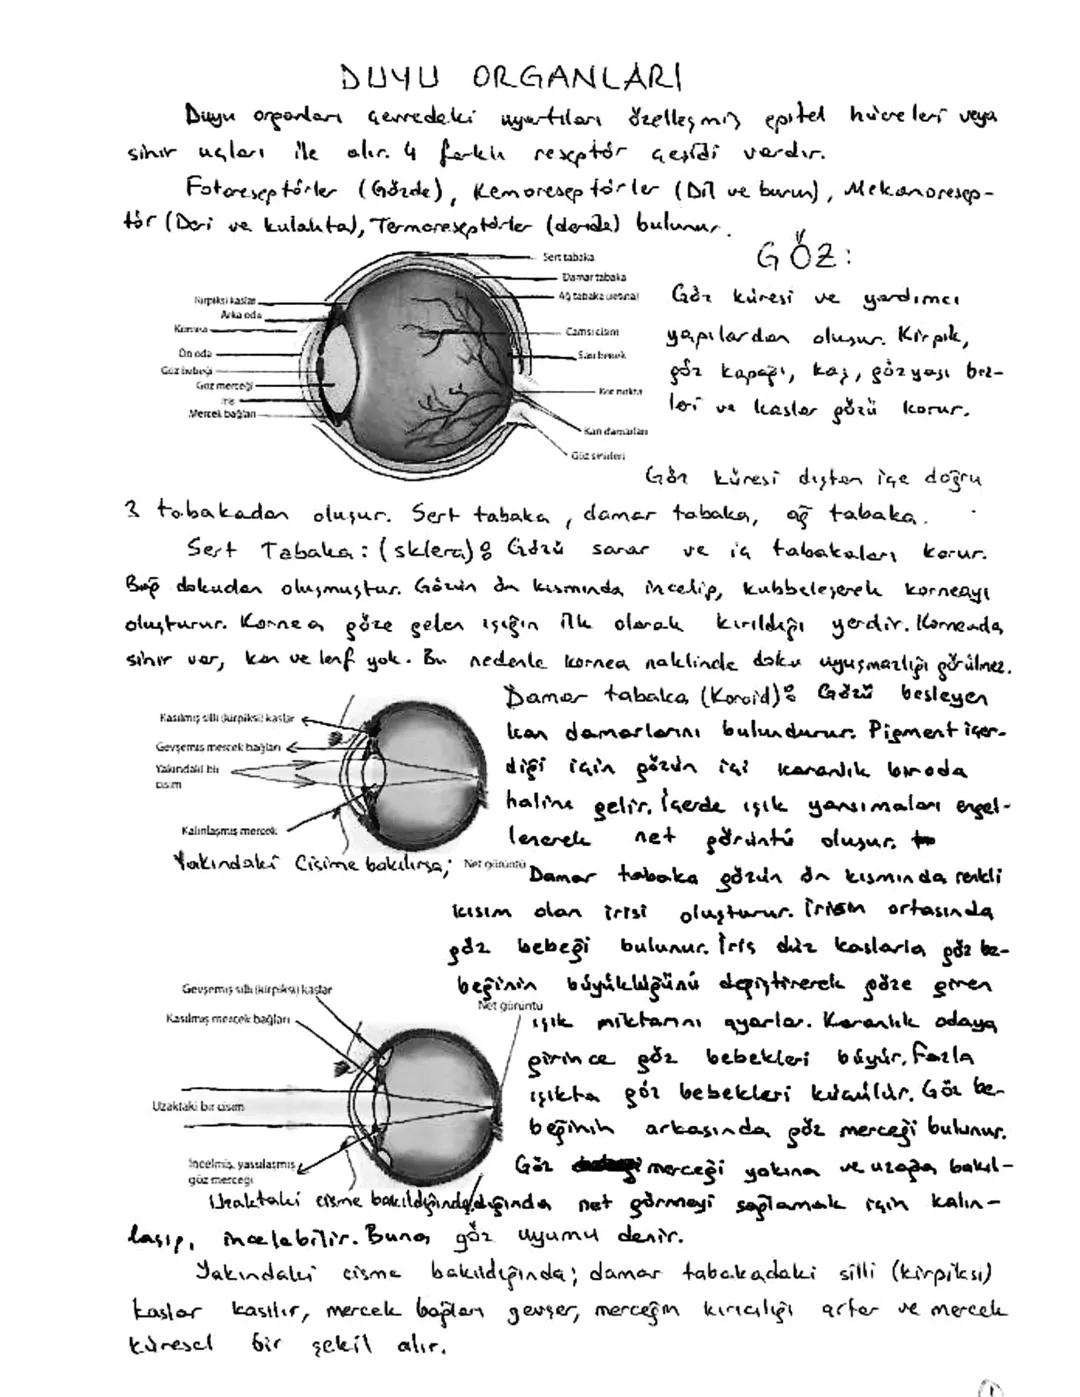 DUYU ORGANLARI
Duyu organları çevredeki uyartıları özelleşmiş epitel hücreleri veya
sinir uçları ile alır. 4 farklı reseptör çeşidi vardır.
Fotoreseptörler (Gözde), Kemoreseptörler (Dil ve burun), Mekanoresep-
tör (Deri ve kulakta), Termoreseptörler (deride) bulunur.
GÖZ:
Sert tabaka
Damar tabaka
Ağ tabaka (retina)
Camsı cisim
Sarı benek
Kör nokta
Kan damarları
Göz sinirleri
Kirpiksi kaslar
Arka oda
Kornea
Ön oda
Göz bebeği
Göz merceği
İris
Mercek bağları
Göz küresi ve yardımcı
yapılardan oluşur. Kirpik,
göz kapağı, kaş, gözyaşı bez-
leri ve kaslar gözü korur.
Göz küresi dıştan içe doğru
3 tabakadan oluşur. Sert tabaka, damar tabaka, ağ tabaka.
Sert Tabaka: (sklera): Gözü sarar ve iç tabakaları korur.
Bağ dokudan oluşmuştur. Gözün ön kısmında incelip, kubbeleşerek korneayı
oluşturur. Kornea göze gelen ışığın ilk olarak kırıldığı yerdir. Korneada
sinir var, kan ve lenf yok. Bu nedenle kornea naklinde doku uyuşmazlığı görülmez.
Kasılmış silli (kirpiksi) kaslar
Gevşemiş mercek bağları
Yakındaki bir
cisim
Kalınlaşmış mercek
Net görüntü
Yakındaki Cisime bakılırsa;
Damar tabaka (Koroid): Gözü besleyen
kan damarlarını bulundurur. Pigment içer-
diği için gözün içi karanlık bir oda
haline gelir. İçerde ışık yansımaları engel-
lenerek net görüntü oluşur.
Damar tabaka gözün ön kısmında renkli
kısım olan irisi oluşturur. İrisin ortasında
göz bebeği bulunur. İris düz kaslarla göz be-
beğinin büyüklüğünü değiştirerek göze giren
ışık miktarını ayarlar. Karanlık odaya
girince göz bebekleri büyür. Fazla
ışıkta göz bebekleri küçülür. Göz be-
beğinin arkasında göz merceği bulunur.
Göz merceği yakına ve uzağa bakıl-
Gevşemiş silli (kirpiksi) kaslar
Kasılmış mercek bağları
Net görüntü
Uzaktaki bir cisim
İncelmiş, yassılaşmış
göz merceği
Uzaktaki cisme bakıldığında/dığında net görmeyi sağlamak için kalın-
laşıp, incelebilir. Buna göz uyumu denir.
Yakındaki cisme bakıldığında; damar tabakadaki silli (kirpiksi)
kaslar kasılır, mercek bağları gevşer, merceğin kırıcılığı artar ve mercek
küresel bir şekil alır.
1